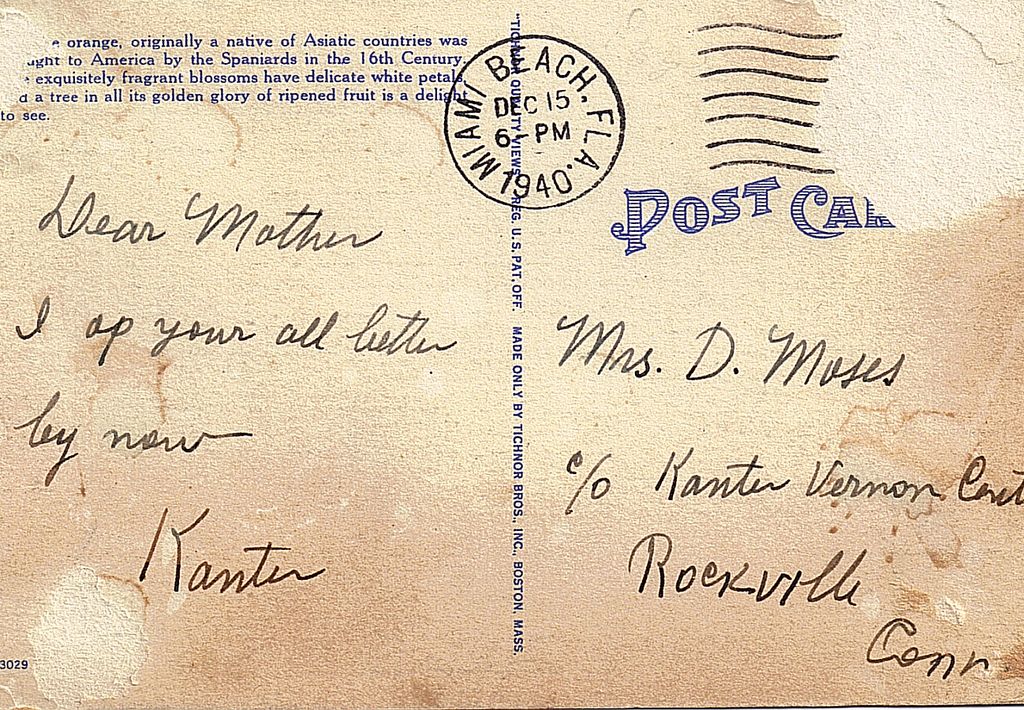 e orange, originally a native of Asiatic countries was
ught to America by the Spaniards in the 16th Century.
exquisitely fragrant blossoms have delicate white petals,
d a tree in all its golden glory of ripened fruit is a delight
to see.
MIAMI BEACH, FLA.
DEC 15
6 - PM
1940
POST CAR
Dear Mother
I op your all better
by now
Kanter
"TICHNOR QUALITY VIEWS," REG. U. S. PAT. OFF. MADE ONLY BY TICHNOR BROS., INC., BOSTON, MASS.
Mrs. D. Moses
c/o Kanter Vernon Cent
Rockville
Conn.
3029